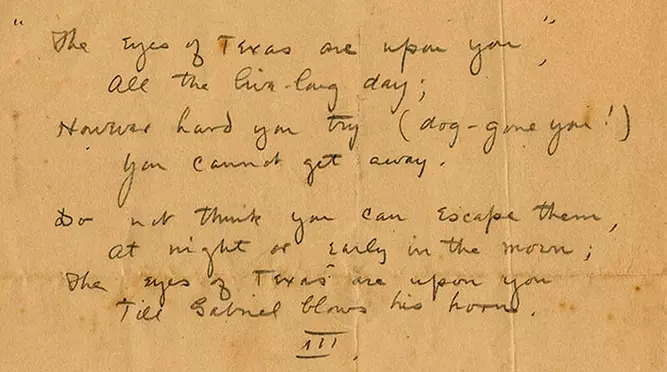 "The Eyes of Texas are upon you",
All the live-long day;
However hard you try (dog-gone you!)
You cannot get away.
Do not think you can escape them,
At night or early in the morn;
The eyes of Texas are upon you
Till Gabriel blows his horn.
III